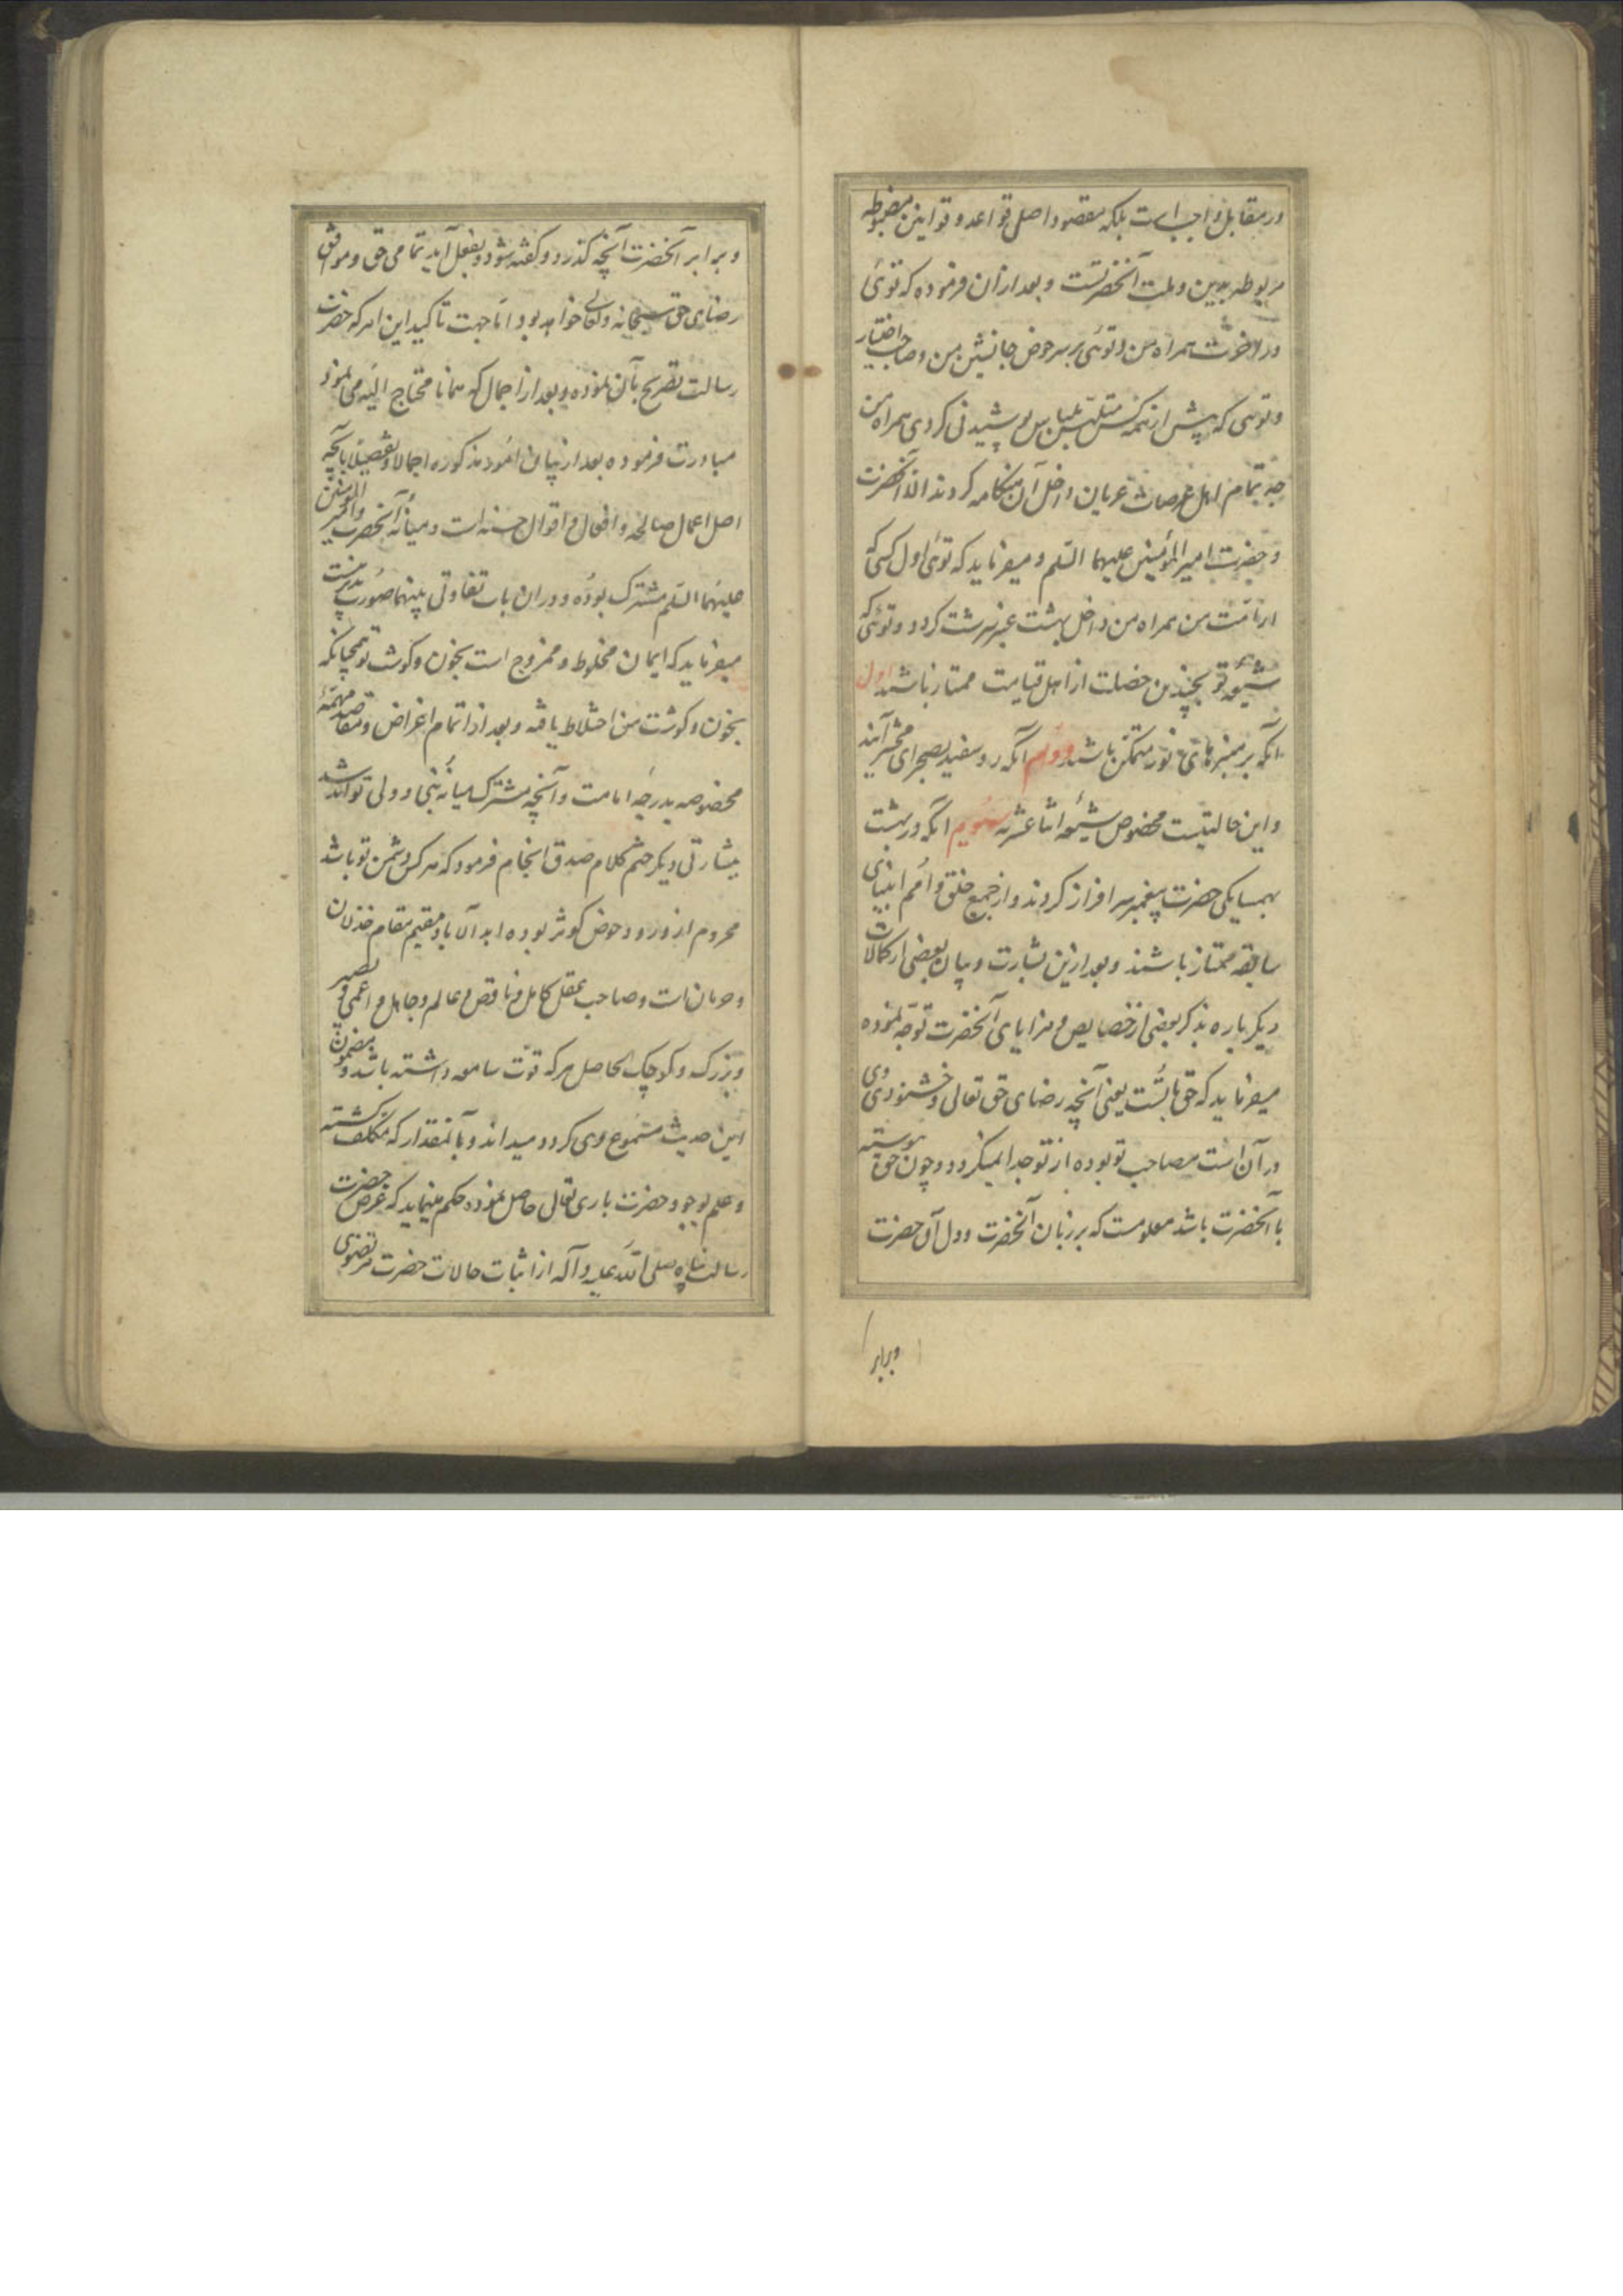 در مقابل واجب است بلکه مقصود اصلی قواعد و قوانین مضبوطه
مربوطه بدین و ملت آنحضرتست و بعد ازان فرموده که توئی
در آخرت همراه من و توئی بر سر حوض جانشین من و صاحب اختیار
و توئی که پیش از همه کس متلبس بلباس پوشیدنی کردی همراه من
چه تمام اهل عرصات عریان داخل آن هنکامه کردند الا آنحضرت
و حضرت امیر المؤمنین علیهما السلم و میفرماید که توئی اول کسی که
از امت من همراه من داخل بهشت عنبر سرشت کردد و توئی که
شیعه تو بچندین خصلت از اهل قیامت ممتاز باشند اول
آنکه بر منبرهای نور متمکن باشند دوم آنکه رو سفید بصحرای محشر آیند
و این حالتیست مخصوص شیعه اثنا عشریه سیوم آنکه در بهشت
بهمسایکی حضرت پیغمبر سرافراز کردند و از جمیع خلق و امم انبیای
سابقه ممتاز باشند و بعد ازین بشارت و بیان بعضی از کمالات
دیکر باره بذکر بعضی از خصایص و مزایای آنحضرت توجه نموده
میفرماید که حق با تست یعنی آنچه رضای حق تعالی و خشنودی وی
در آن است مصاحب تو بوده از تو جدا نمیکردد و چون حق پیوسته
با آنحضرت باشد معلومست که بر زبان آنحضرت و دل آن حضرت
وبرابر
و برابر آنحضرت آنچه کذرد و کفته شود و بفعل آید تمامی حق و موافق
رضای حق سبحانه و تعالی خواهد بود اما جهت تاکید این امر که حضرت
رسالت تصریح بآن نموده و بعد از اجمال که همانا محتاج الیه می نمود
مبادرت فرموده بعد از بیان امور مذکوره اجمالا و تفصیلا بآنچه
اصل اعمال صالحه و افعال و اقوال حسنه است و میانه آنحضرت و امیر المؤمنین
علیهما السلم مشترک بوده و دران باب تفاوتی بینهما صورت پذیر نیست
میفرماید که ایمان مخلوط و ممزوج است بخون و کوشت تو همچنانکه
بخون و کوشت من اختلاط یافته و بعد از اتمام اغراض و مقاصد مهمه
مخصوصه بدرجه امامت و آنچه مشترک میانه نبی و ولی تواند شد
بشارتی دیکر ختم کلام صدق انجام فرمود که هر کس دشمن تو باشد
محروم از ورود حوض کوثر بوده ابد الاباد مقیم مقام خذلان
و حرمان است و صاحب عقل کامل و ناقص و عالم و جاهل و اعمی و بصیر
و بزرک و کوچک الحاصل هر که قوت سامعه داشته باشد و مضمون
این حدیث مسموع وی کردد میداند و بآنمقدار که مکلف کشته
و علم بوجود حضرت باری تعالی حاصل نموده حکم مینماید که غرض حضرت
رسالت پناه صلی الله علیه و آله از اثبات حالات حضرت مرتضوی